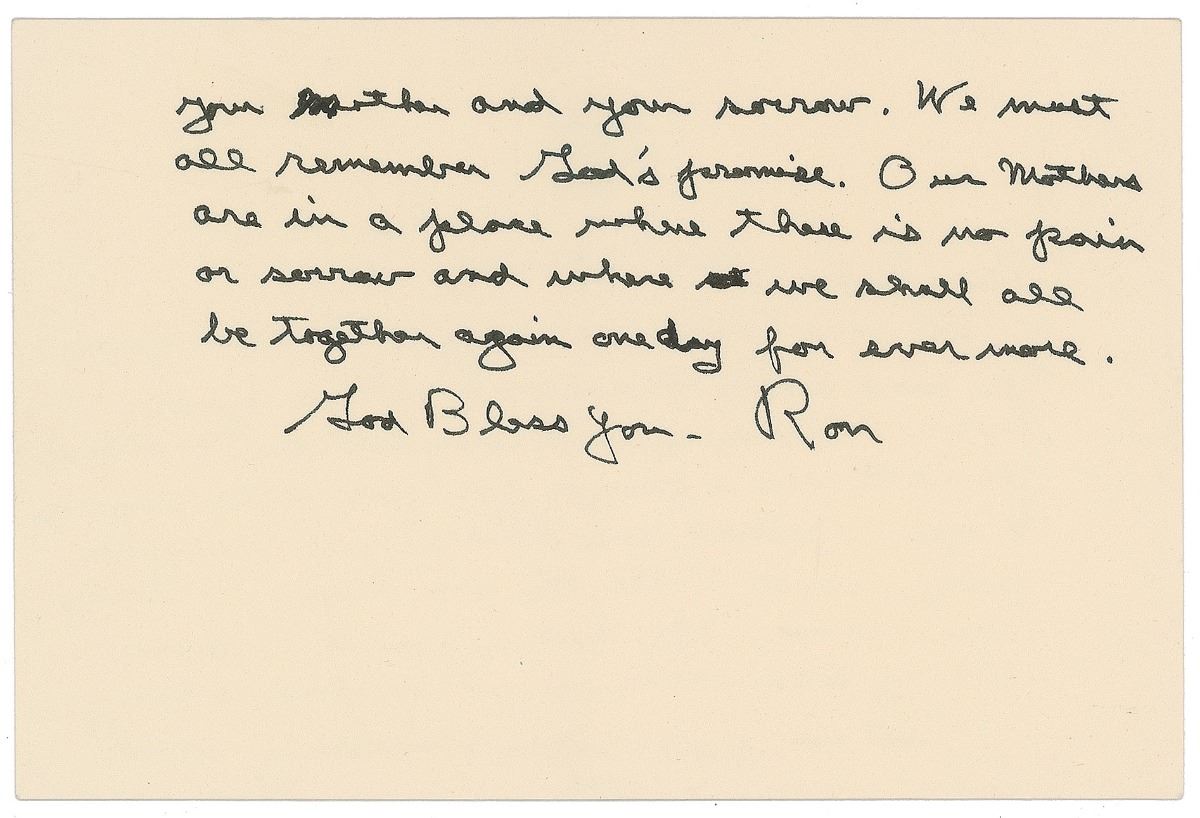 your Mother and your sorrow. We must
all remember God's promise. Our Mothers
are in a place where there is no pain
or sorrow and where we shall all
be together again one day for ever more.
God Bless You - Ron